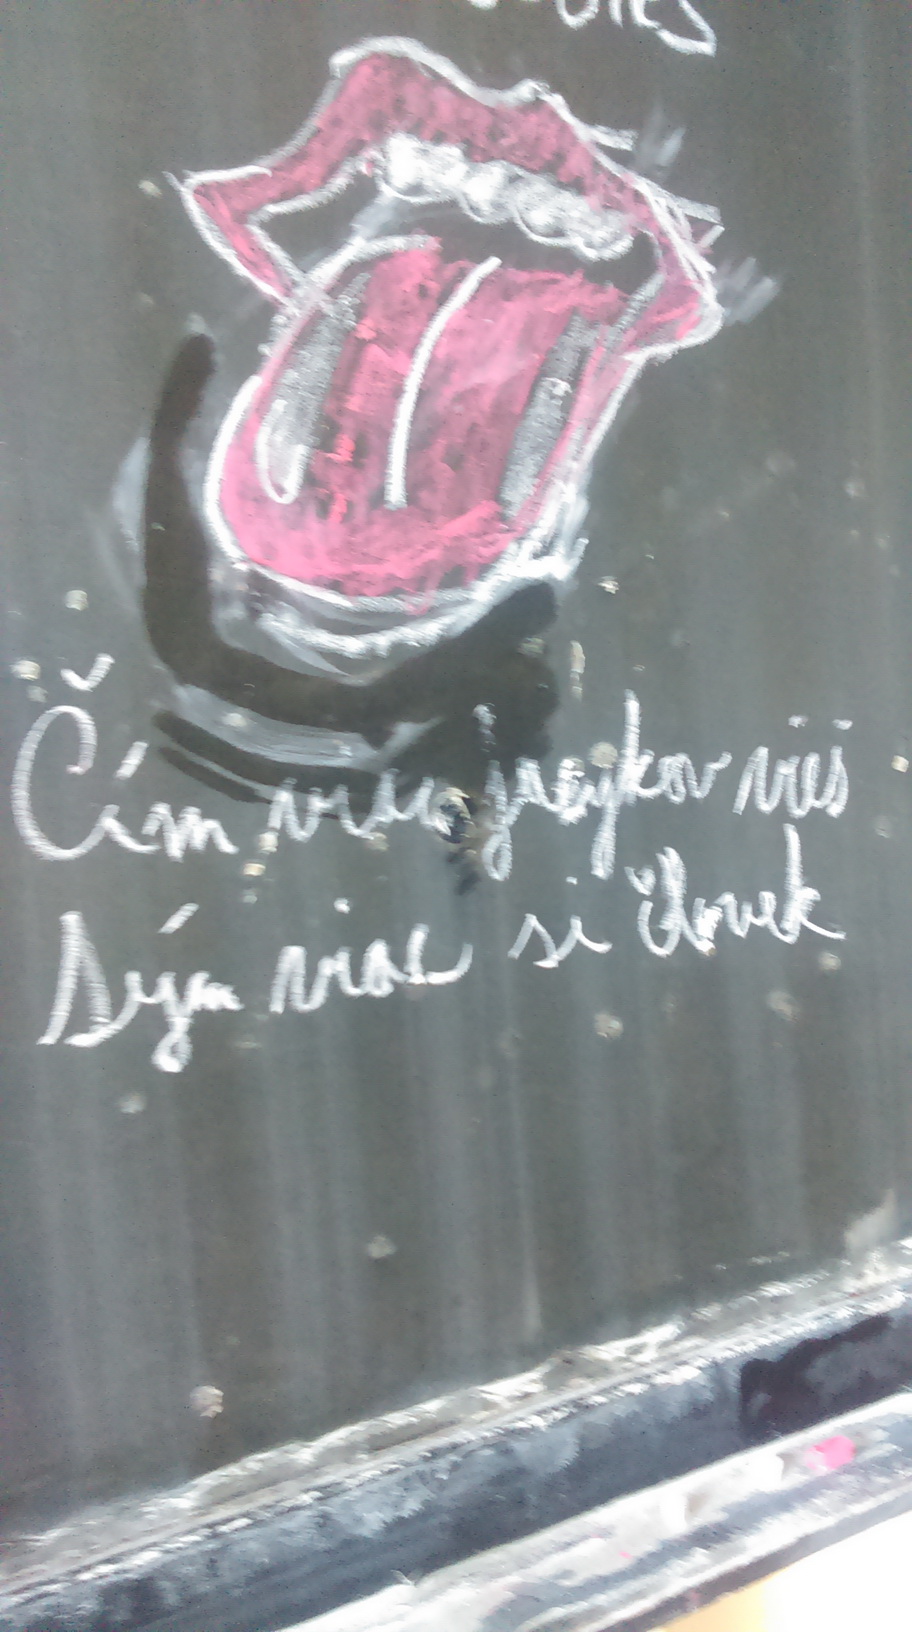 Čím viac jazykov vieš
tým viac si človek